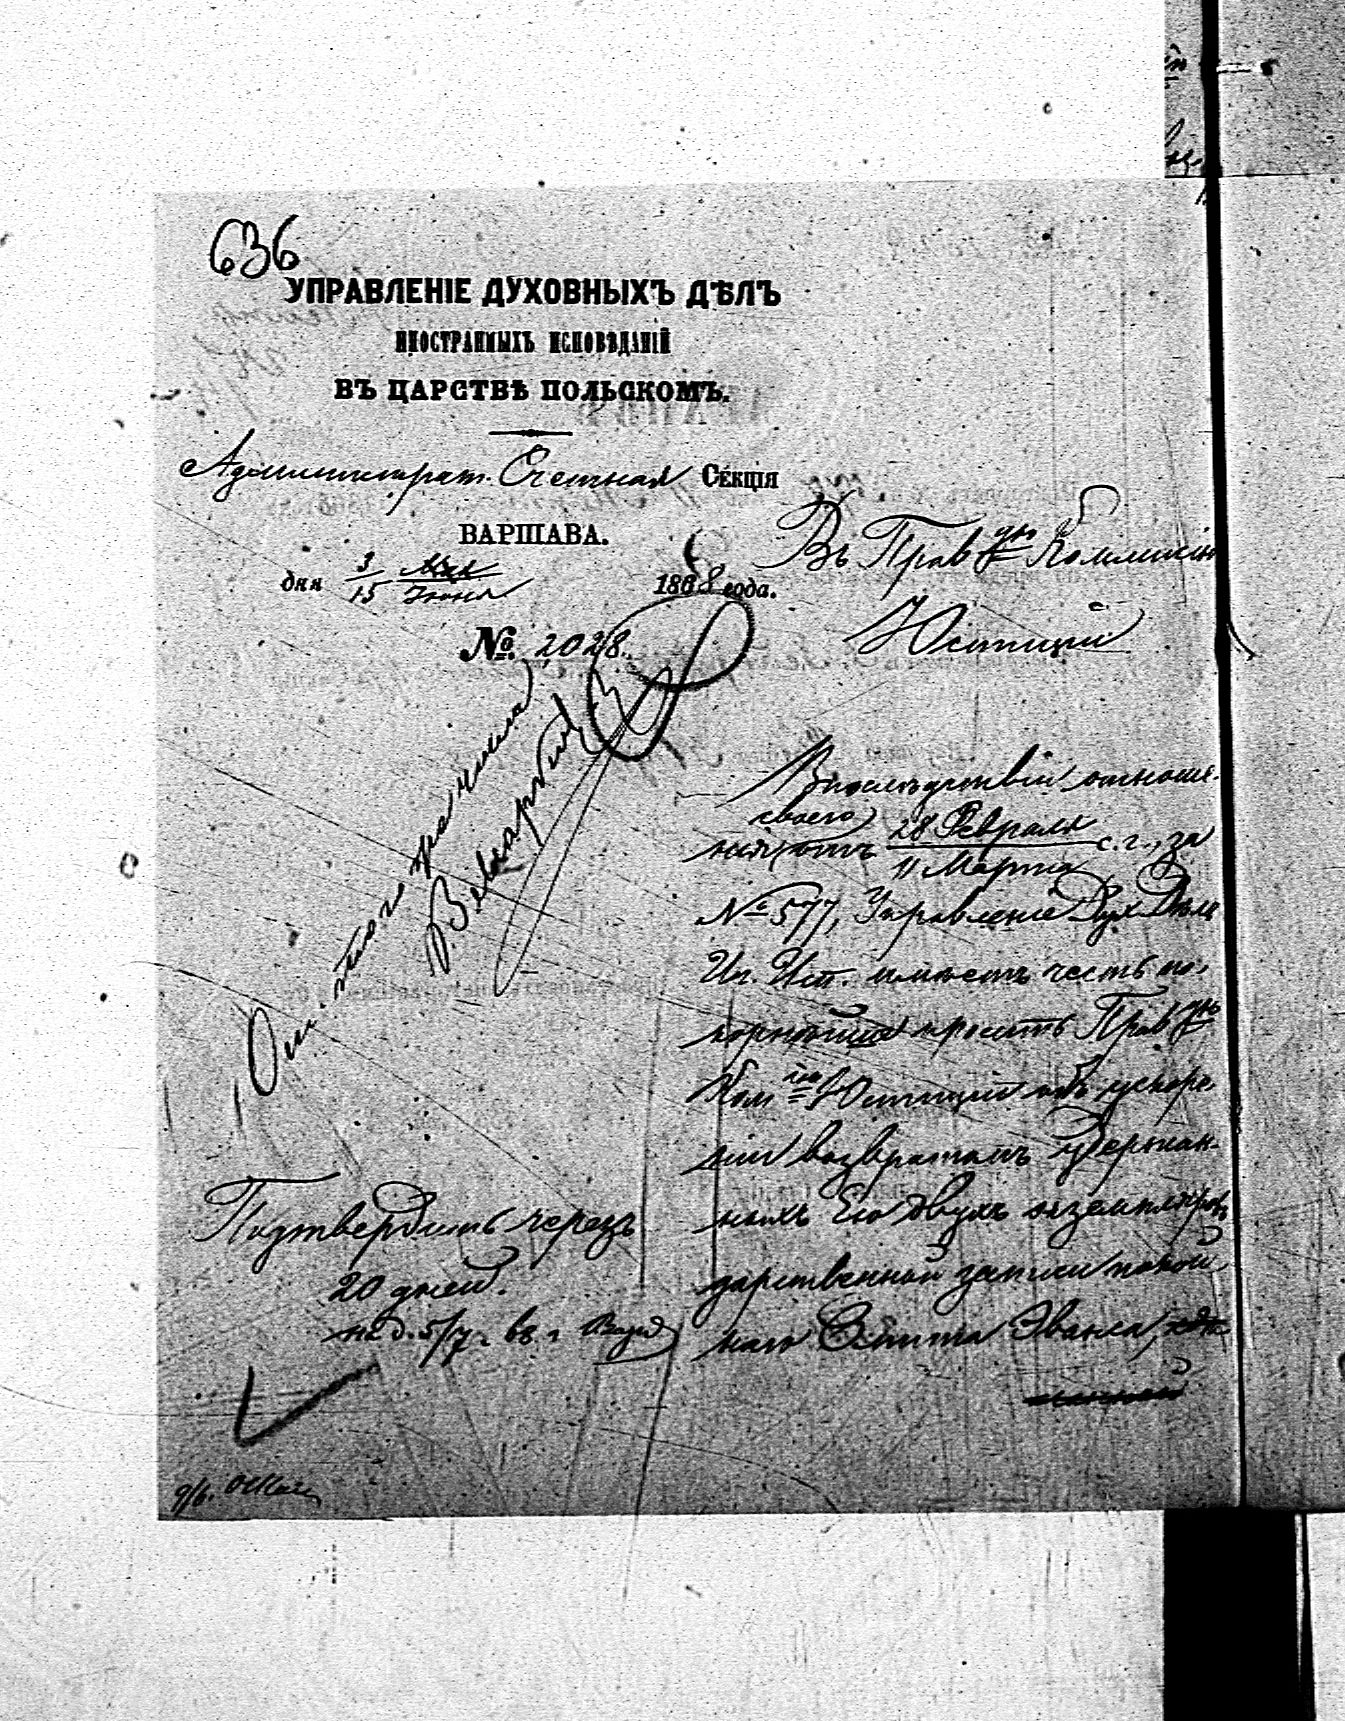 636
УПРАВЛЕНІЕ ДУХОВНЫХЪ ДѢЛЪ
ИНОСТРАННЫХЪ ИСПОВѢДАНІЙ
ВЪ ЦАРСТВѢ ПОЛЬСКОМЪ.
Администрат. Счетная СЕКЦІЯ
ВАРШАВА.
дня 3/15 Мая Іюня 1868 года.
№ 2028.
Въ Прав ую Коммисію
Юстиціи
От. того же числа
Впослѣдствіи отноше-
своего
нія отъ 28 Февраля / 11 Марта с. г., за
№ 577, Управленіе Дух. Дѣлъ
Ин. Исп. имѣетъ честь по-
корнѣйше просить Прав ую
Ком ію Юстиціи объ ускоре-
ніи возвратомъ удержан-
ныхъ Ею двухъ экземпляровъ
дарственной записи покой-
наго Эванса,
Подтвердить черезъ
20 дней.
5/7. 68 г.
9/6.